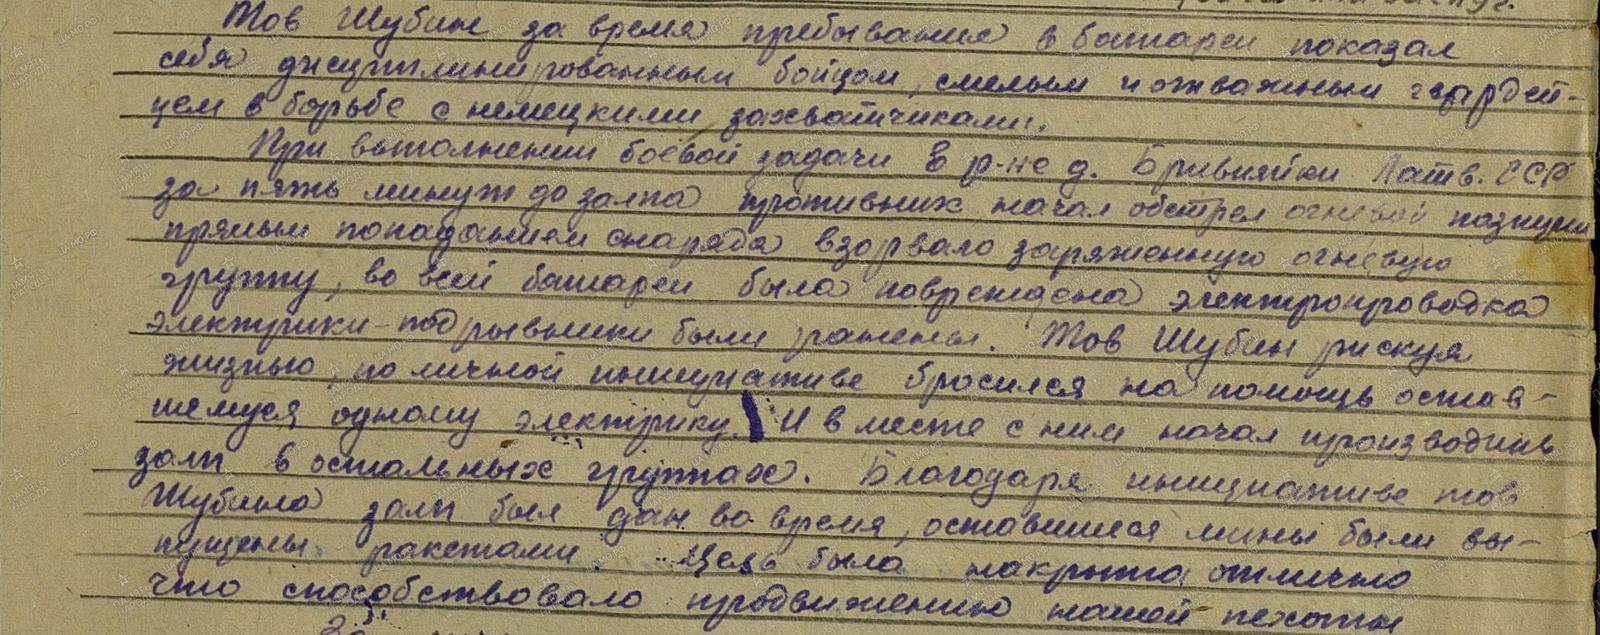 Тов Шубин за время пребывания в батареи показал
себя дисциплинированным бойцом, смелым и отважным гвардей-
цем в борьбе с немецкими захватчиками.
При выполнении боевой задачи в р-не д. Бривняйки Латв. ССР
за пять минут до залпа противник начал обстрел огневой позиции
прямым попаданием снаряда взорвало заряженную огневую
группу, во всей батареи была повреждена электропроводка
электрики-подрывники были ранены. Тов Шубин рискуя
жизнью, по личной инициативе бросился на помощь остав-
шемуся одному электрику. И в месте с ним начал производить
залп в остальных группах. Благодаря инициативе тов
Шубина залп был дан во время, оставшиеся мины были вы-
пущены ракетами. Цель была накрыта отлично
что способствовало продвижению нашей пехоты
За